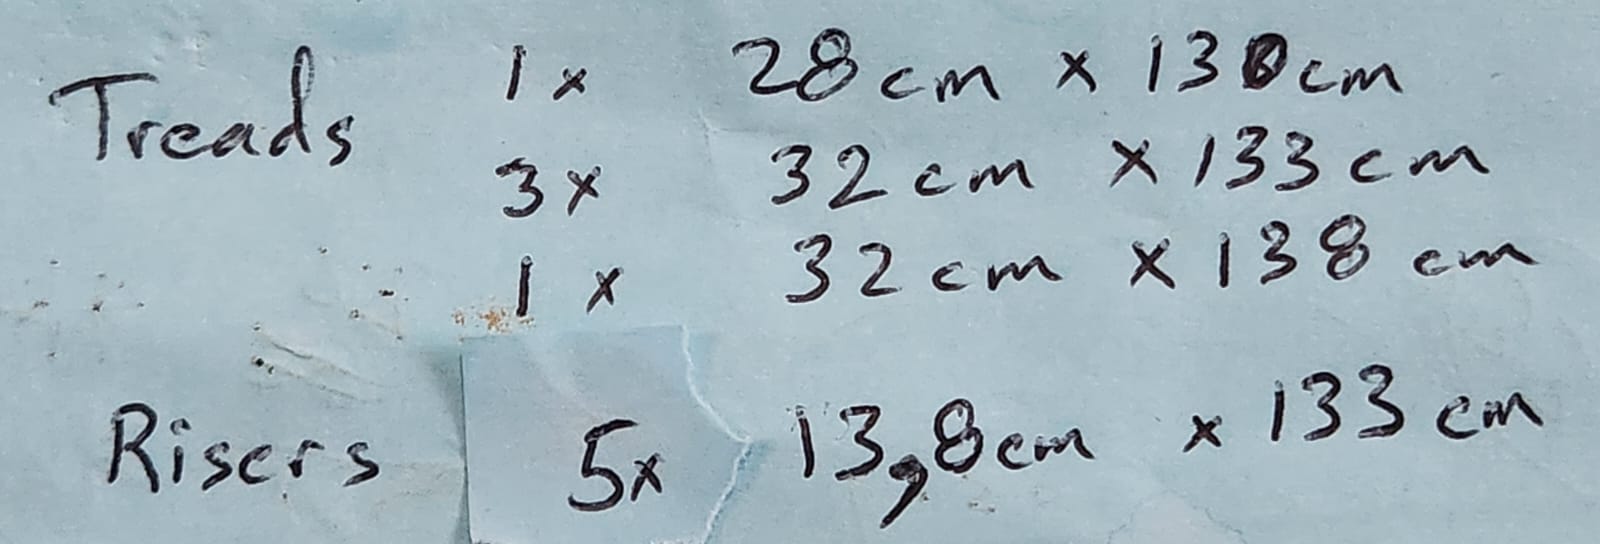 Treads 1x 28cm x 130cm
3x 32cm x 133cm
1x 32cm x 138cm
Risers 5x 13,8cm x 133cm